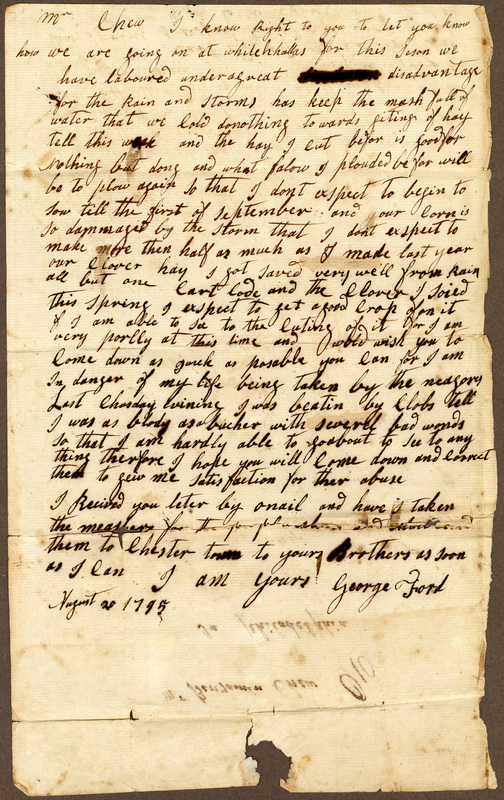 Mr Chew I know Right to you to let you know
how we are going on at whitehhalls for this Seson we
have laboured under a great disadvantage
for the Rain and Storms has keep the mash full of
water that we Cold donothing towards giting of hay
tell this week and the hay I cut befor is good for
Nothing but dong and what falow I plouded be for will
be to plow again so that I dont expect to begin to
sow till the first of september and our Corn is
so dammaged by the storm that I dont expect to
make more then half as much as I made last year
our Clover hay I got saved very well from Rain
all but one Cart Lode and the Clover I soied
this Spring I expect to get a good Crop from it
if I am able to See to the Cuting of it for I am
very portly at this time and I wold wish you to
Come down as quick as posable you Can for I am
In danger of my life being taken by the neagors
Last Chusday evining I was beatin by Clobs tell
I was as blody as a bucher with severll bad wonds
so that I am hardly able to go about to see to any
thing therfore I hope you will Come down and Correct
them to give me Satisfaction for ther abuse
I Recived you leter by onail and have taken
the meashers for the and
them to Chester town to yours Brothers as soon
as I Can I am yours George Ford
August 20 1795
To Philadelphia
Mr Benjamin Chew